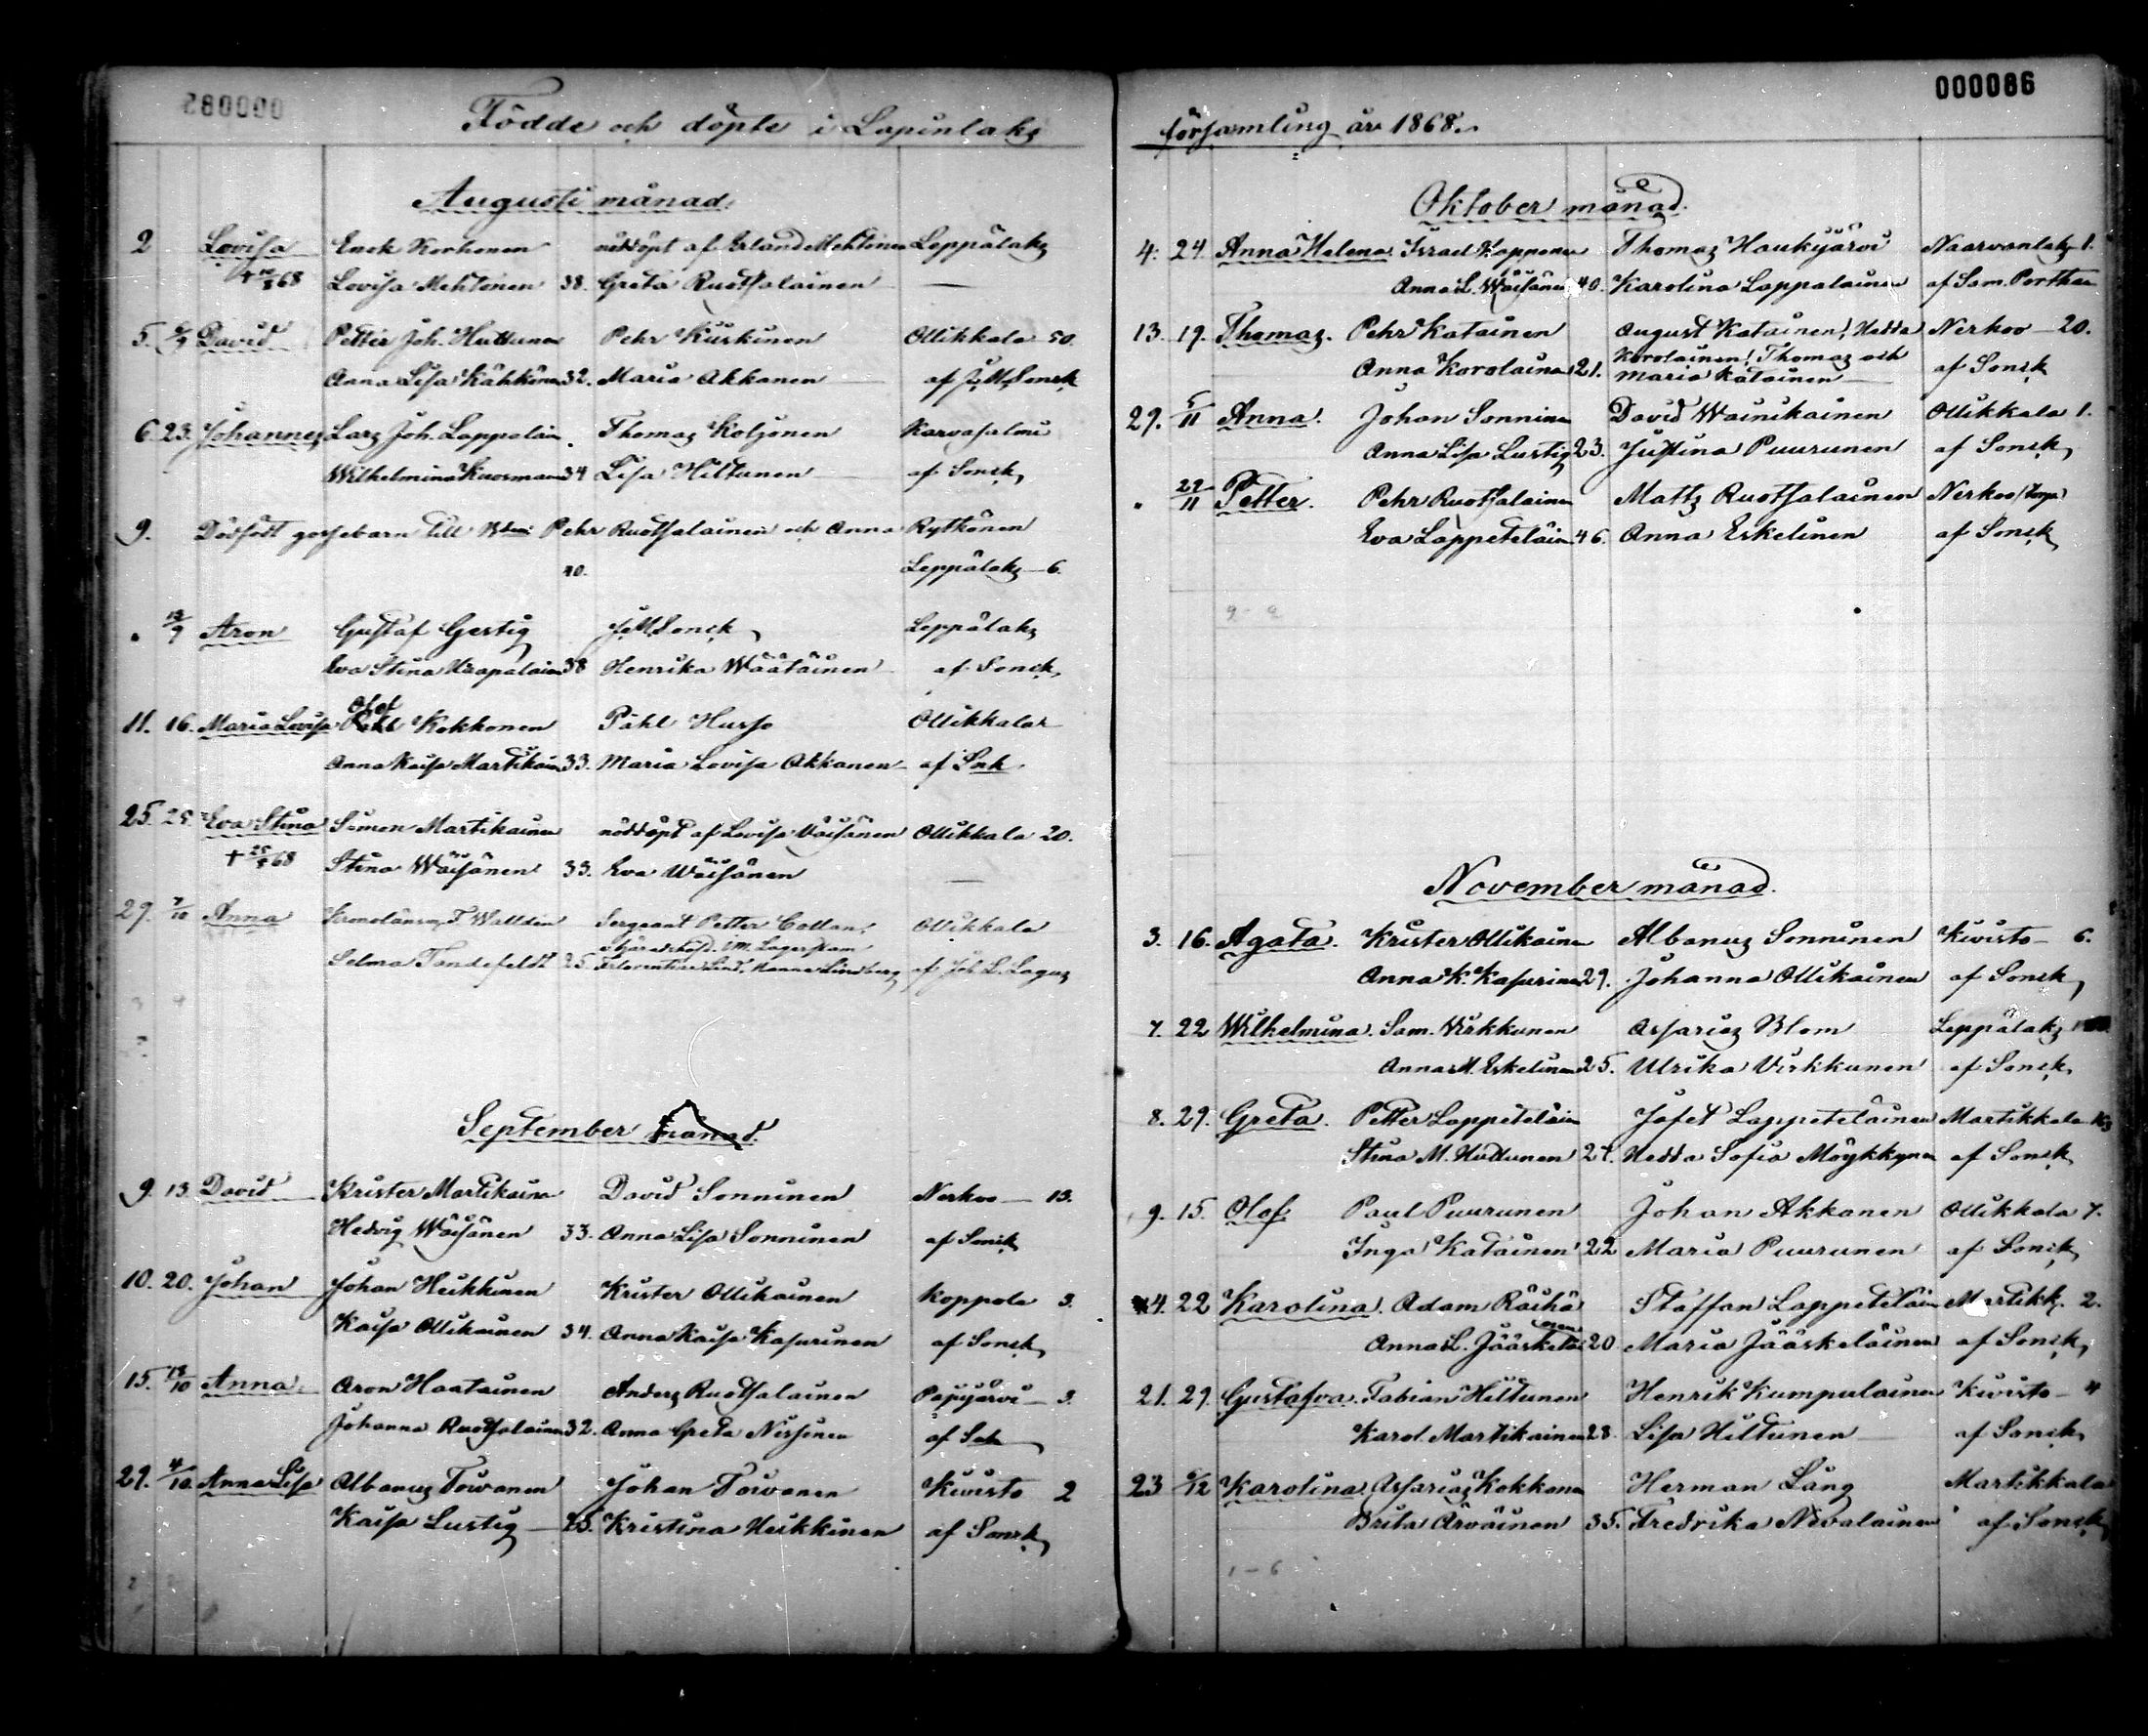 000085
Födde och döpte i Lapinlaks
Augusti månad.
2 Lovisa Enok Korhonen nöddöpt af Erland Mehtonen Leppälaks
Lovisa Mehtonen 38. Greta Ruotsalainen —
5. 6/9 David Petter Joh. Huttunen Pehr Kuskinen Ollikkala 50.
Anna Lisa Kähkönen 32. Maria Akkanen — af J.M. Sonck
6. 23. Johannes Lars Joh. Lappalain Thomas Koljonen Karvasalmi
Wilhelmina Kuosman 34 Lisa Hiltunen — af Sonck
9. Dödfödt gossebarn till Bden Pehr Ruotsalainen och Anna Rytkönen
40. Leppälaks — 6.
" 13/9 Aron Gustaf Gestig J.M. Sonck Leppälaks
Eva Stina 38 Henrika Wäätäinen af Sonck
11. 16. Maria Lovisa Olof Kokkonen Påhl Husso Ollikkala
Anna Kaisa Martikain 33. Maria Lovisa Akkanen af Snk
25. 25. Eva Stina Simon Martikainen nöddöpt af Lovisa Väisänen Ollikkala 20.
† 25/8 68 Stina Wäisänen 33. Eva Wäisänen —
29. 7/10 Anna Kronolänsm. F. Walldén Sergeant Petter Collan, Ollikkala
Selma Tandefeldt 25. Florentine Lind, Hanna Lindberg af Joh. L. Lagus
September månad.
9. 13. David Krister Martikainen David Sonninen Nerkoo — 13.
Hedvig Wäisänen 33. Anna Lisa Sonninen af Sonck
10. 20. Johan Johan Heikkinen Krister Ollikainen Koppola 3.
Kaisa Ollikainen 34. Anna Kaisa Kasurinen af Sonck
15. 18/10 Anna Aron Haatainen Anders Ruotsalainen Pajujärvi — 3.
Johanna Ruotsalainen 32. Anna Greta Nissinen af
29. 4/10. Anna Lisa Albanus Toivanen Johan Toivanen Kivisto 2
Kaisa Lustig — 25. Kristina Heikkinen af Sonck
000086
församling år 1868.
Oktober månad.
4. 24. Anna Helena. Israel Kopponen Thomas Haukijärvi Naarvanlaks 1.
Anna L. Wäisänen 40. Karolina Lappalainen af Sam. Porthan
13. 19. Thomas. Pehr Katainen August Katainen, Hedda Nerkoo — 20.
Anna Korolainen 21. Korolainen, Thomas och Maria Katainen — af Sonck
29. 5/11 Anna. Johan Sonninen David Wainikainen Ollikkala 1.
Anna Lisa Lustig 23. Justina Puurunen af Sonck
" 22/11 Petter. Pehr Ruotsalainen Matts Ruotsalainen Nerkoo
Eva Lappeteläin 46. Anna Eskelinen af Sonck
November månad.
3. 16. Agata. Krister Ollikainen Albanus Sonninen Kivisto — 6.
Anna K. Kasurinen 29. Johanna Ollikainen af Sonck
7. 22 Wilhelmina. Sam. Virkkunen Assarias Blom Leppälaks
Anna M. Eskelinen 25. Ulrika Virkkunen af Sonck
8. 29. Greta. Petter Lappeteläin Jafet Lappeteläinen Martikkala 16
Stina M. Huttunen 27. Hedda Sofia Möykkynen af Sonck
9. 15. Olof Paul Puurunen Johan Akkanen Ollikkala 7.
Inga Katainen 22 Maria Puurunen af Sonck
4. 22 Karolina. Adam Räihä Staffan Lappeteläin Martikk. 2.
Anna L. Jääskeläinen 20 Maria Jääskeläinen af Sonck
21. 29. Gustafva. Fabian Hiltunen Henrik Kumpulainen Kivisto — 4
Karol. Martikainen 28. Lisa Hiltunen — af Sonck
23 6/12 Karolina. Assarias Kokkonen Herman Lång Martikkala
Brita Ärväinen 35. Fredrika Nivalainen af Sonck
1 - 6